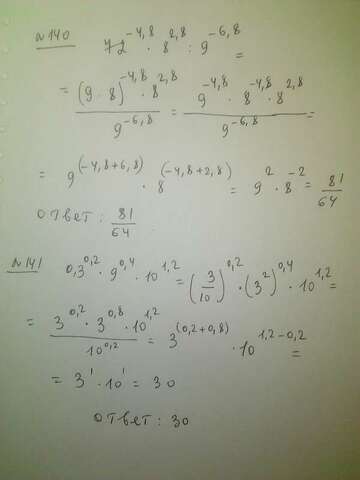 №140 72^{-4,8} · 8^{2,8} : 9^{-6,8} =
= \frac{(9 · 8)^{-4,8} · 8^{2,8}}{9^{-6,8}} = \frac{9^{-4,8} · 8^{-4,8} · 8^{2,8}}{9^{-6,8}} =
= 9^{(-4,8+6,8)} · 8^{(-4,8+2,8)} = 9^2 · 8^{-2} = \frac{81}{64}
ответ: \frac{81}{64}
№141 0,3^{0,2} · 9^{0,4} · 10^{1,2} = (\frac{3}{10})^{0,2} · (3^2)^{0,4} · 10^{1,2} =
= \frac{3^{0,2} · 3^{0,8} · 10^{1,2}}{10^{0,2}} = 3^{(0,2+0,8)} · 10^{1,2-0,2} =
= 3^1 · 10^1 = 30
ответ: 30